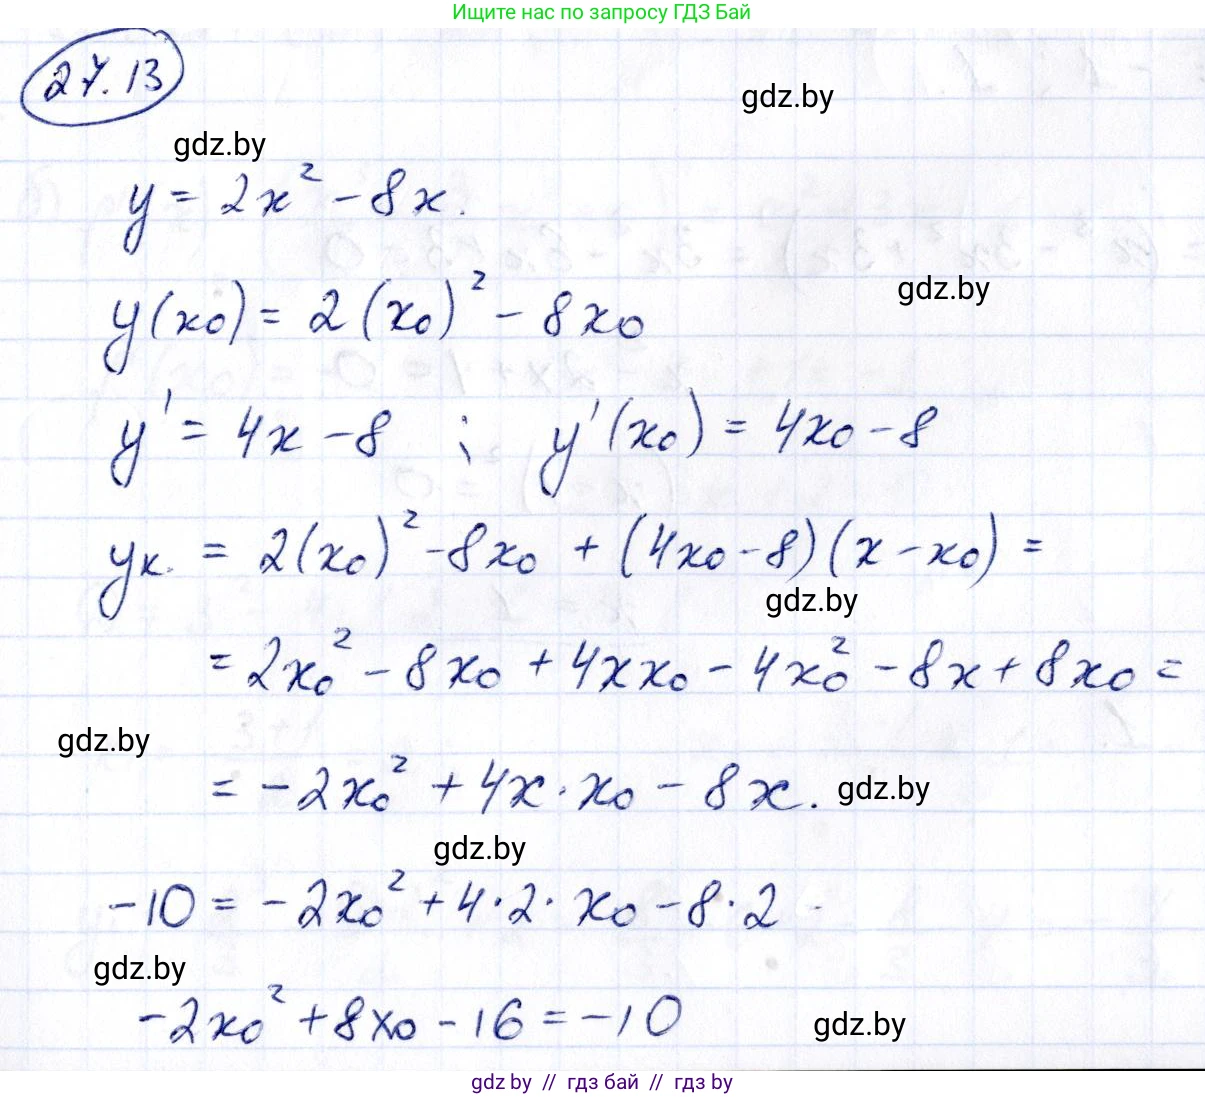 Ищите нас по запросу ГДЗ Бай
27.13
gdz.by
gdz.by
y = 2x² - 8x.
gdz.by
y(x₀) = 2(x₀)² - 8x₀
y' = 4x - 8 ; y'(x₀) = 4x₀ - 8
yк. = 2(x₀)² - 8x₀ + (4x₀ - 8)(x - x₀) =
gdz.by
= 2x₀² - 8x₀ + 4xx₀ - 4x₀² - 8x + 8x₀ =
gdz.by
= -2x₀² + 4x·x₀ - 8x.
gdz.by
gdz.by
-10 = -2x₀² + 4·2·x₀ - 8·2
gdz.by
-2x₀² + 8x₀ - 16 = -10
gdz.by
gdz by // гдз бай // gdz by